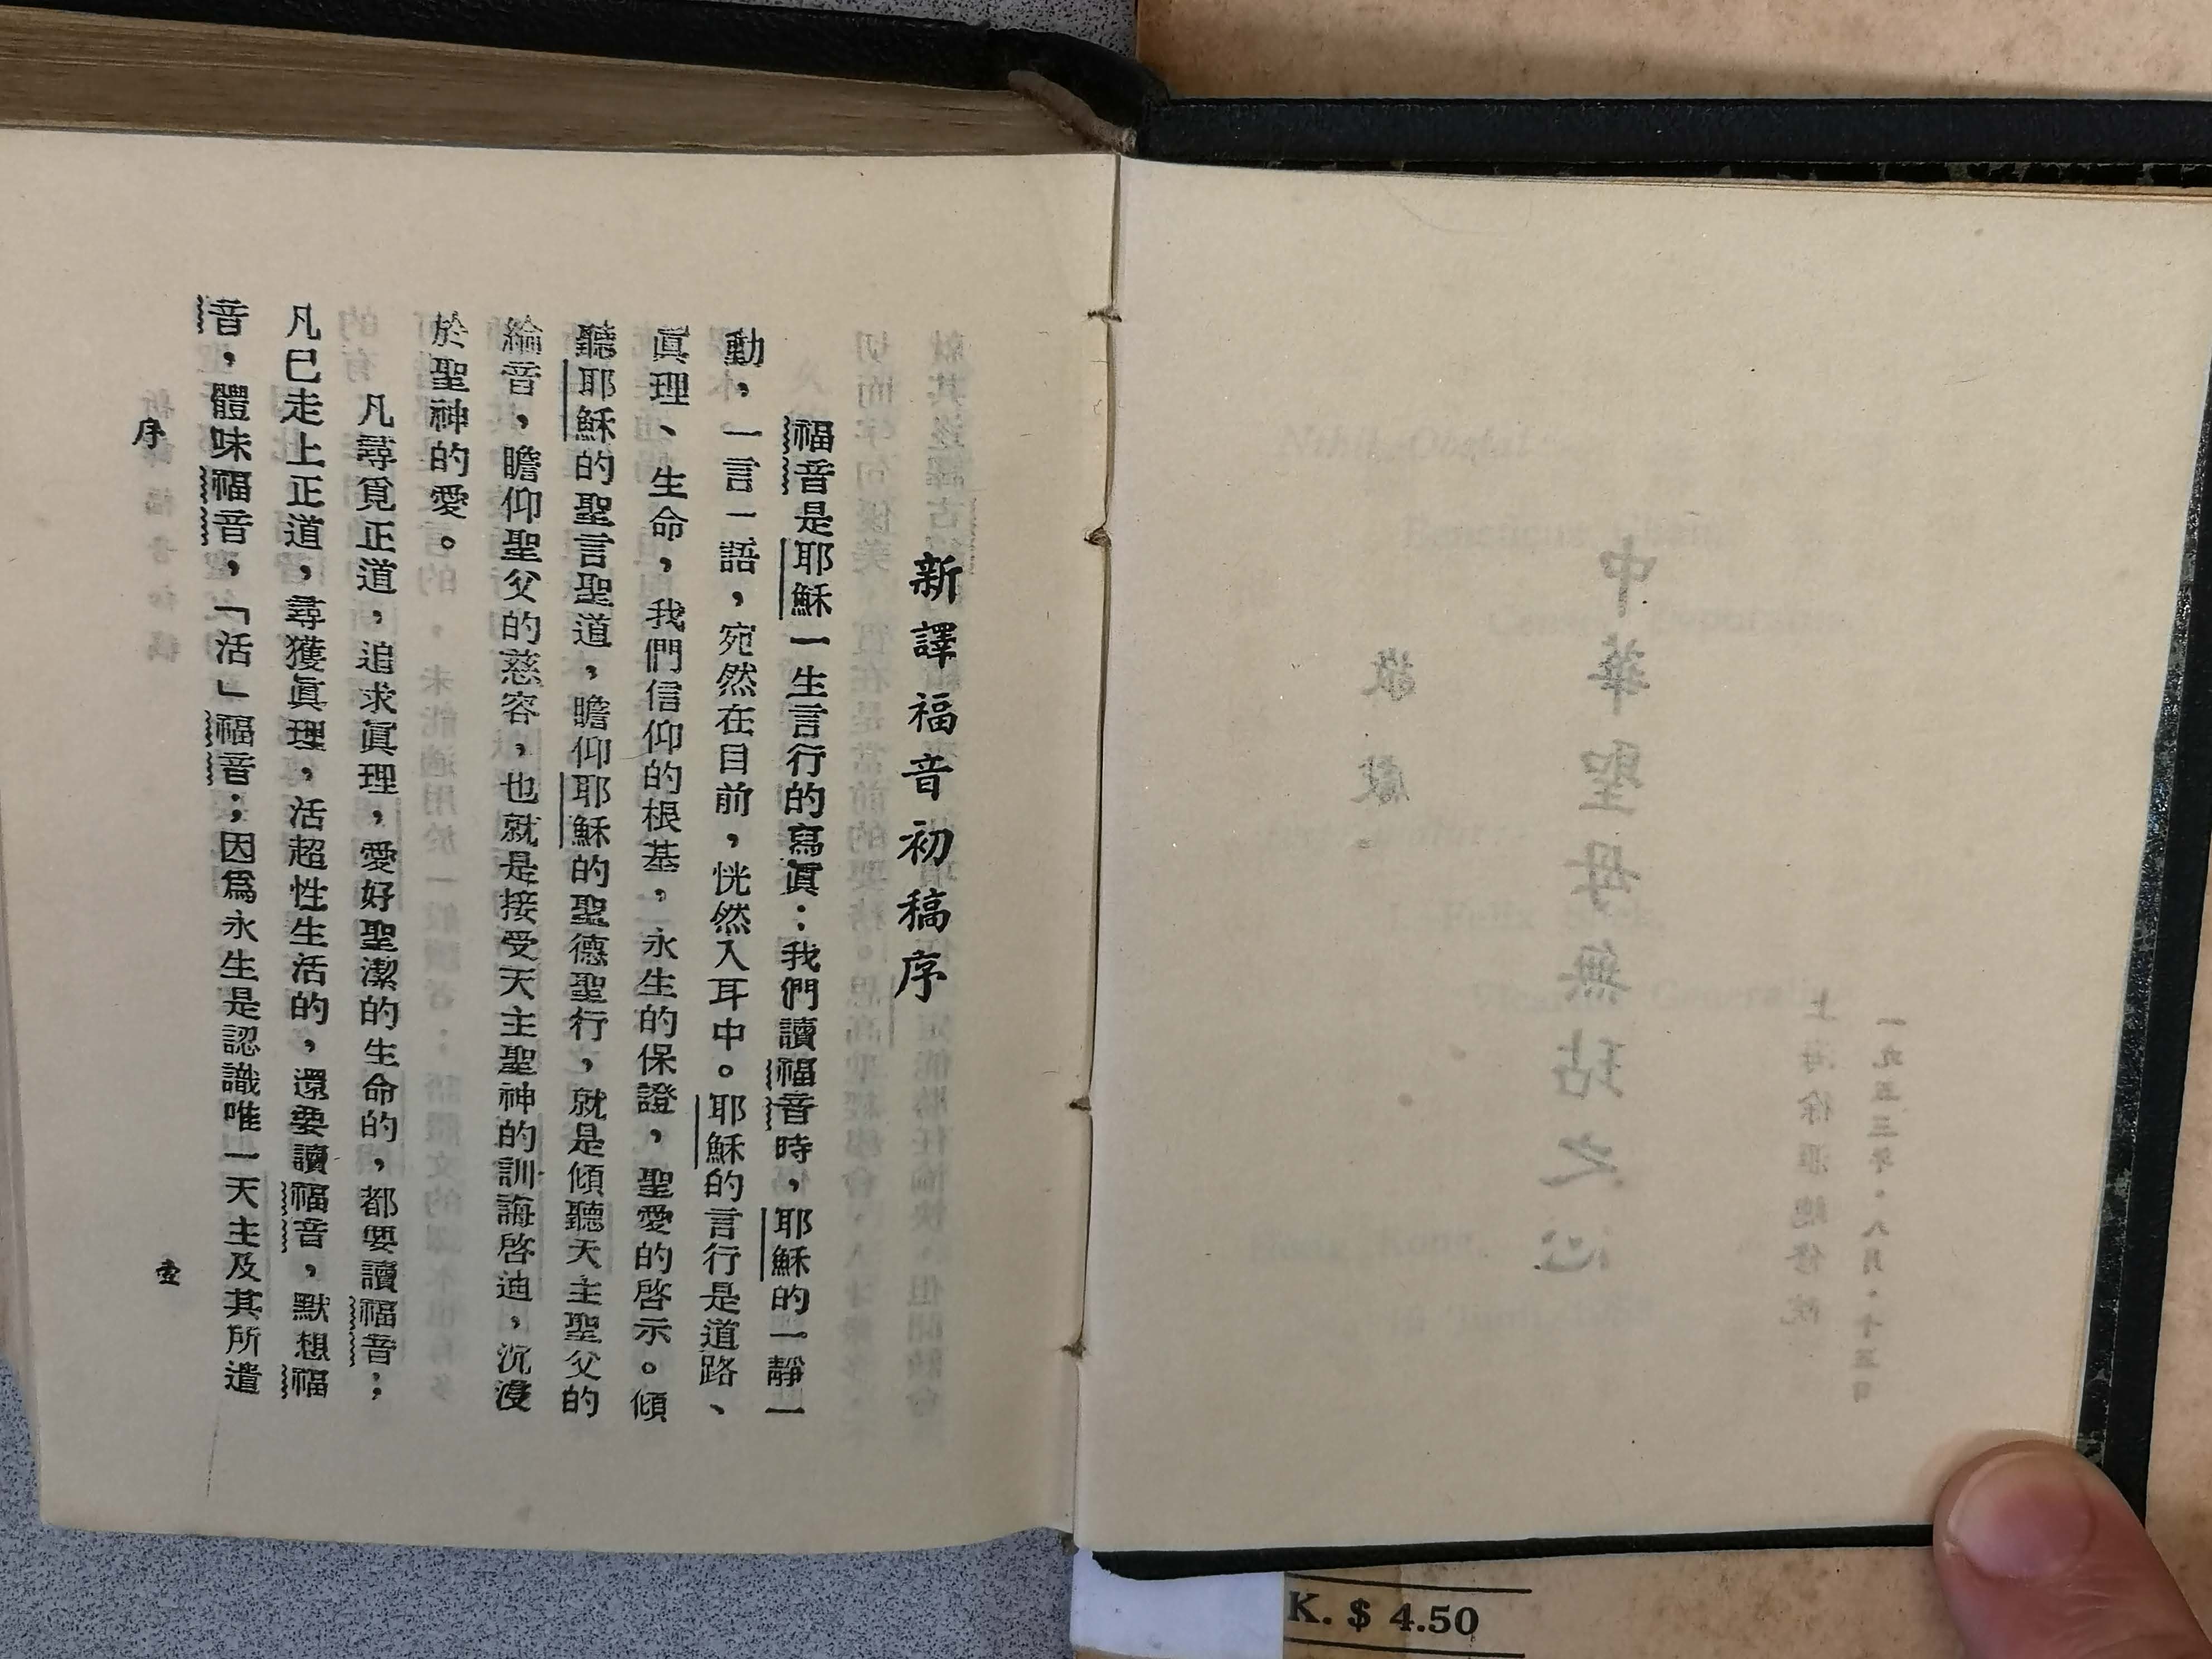 新譯福音初稿序
福音是耶穌一生言行的寫眞：我們讀福音時，耶穌的一靜一
動，一言一語，宛然在目前，恍然入耳中。耶穌的言行是道路、
眞理、生命，我們信仰的根基，永生的保證，聖愛的啓示。傾
聽耶穌的聖言聖道，瞻仰耶穌的聖德聖行，就是傾聽天主聖父的
綸音，瞻仰聖父的慈容，也就是接受天主聖神的訓誨啓迪，沉浸
於聖神的愛。
凡尋覓正道，追求眞理，愛好聖潔的生命的，都要讀福音；
凡已走上正道，尋獲眞理，活超性生活的，還要讀福音，默想福
音，體味福音，「活」福音；因爲永生是認識唯一天主及其所遣
序
壹
一九五三年・八月・十五日
上海徐滙總修院
中華聖母無玷之心
敬獻
K. $ 4.50